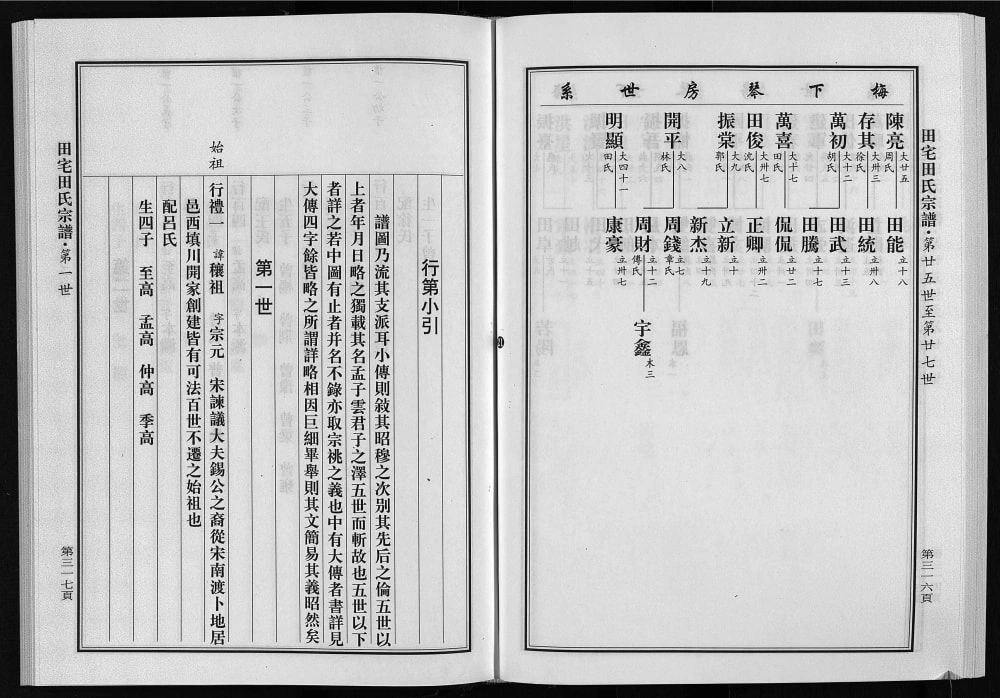 田宅田氏宗譜·第廿五世至第廿七世
第三一六頁
梅下琴房世系
陳亮 大廿五 周氏
田能 立十八
存其 大卅三 徐氏
田統 立卅八
萬初 大十二 胡氏
田武 立十三
田騰 立十七
萬喜 大十七 田氏
侃侃 立廿二
田俊 大卅七 沈氏
正卿 立卅二
振棠 大九 郭氏
立新 立十
新杰 立十九
開平 大八 林氏
周錢 立七 章氏
周財 立十二 傅氏
宇鑫 木三
明顯 大四十一 田氏
康豪 立卅七
行第小引
譜圖乃流其支派耳小傳則敍其昭穆之次別其先后之倫五世以
上者年月日略之獨載其名孟子雲君子之澤五世而斬故也五世以下
者詳之若中圖有止者并名不錄亦取宗祧之義也中有大傳者書詳見
大傳四字餘皆略之所謂詳略相因巨細畢舉則其文簡易其義昭然矣
第一世
始祖
行禮一 諱穰祖 字宗元 宋諫議大夫錫公之裔從宋南渡卜地居
邑西填川開家創建皆有可法百世不遷之始祖也
配呂氏
生四子 至高 孟高 仲高 季高
田宅田氏宗譜·第一世
第三一七頁